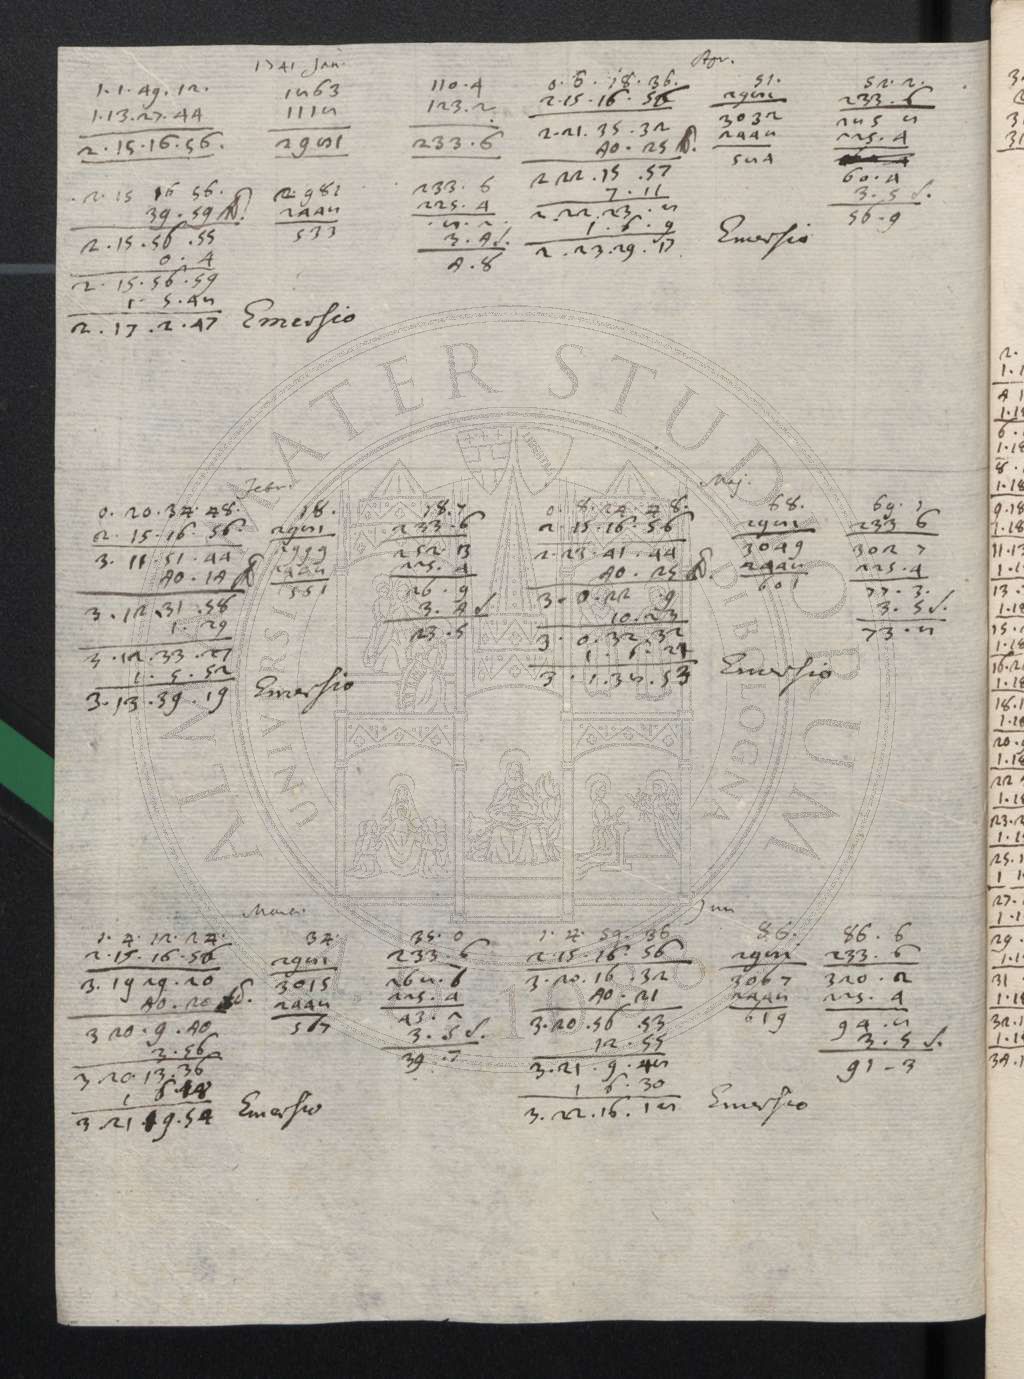 1741 Jan.
1.1.49.12.   1863   110.4
1.13.27.44   1118   123.2
2.15.16.56.   2981   233.6
2.15 16 56.   2.981   233.6
39.59   2448   225.4
2.15.56.55   533   8.2
0.4   3.4
2.15.56.59   4.8
1.5.48
2.17.2.47   Emersio
Apr.
0.6.18.36.   51.   52.2.
2.15.16.56   2981   233.6
2.21.35.32   3032   285.8
40.25   2448   225.4
2 22.15.57   584   60.4
7.11   3.5
2.22.23.8   56.9
1.6.9
2.23.29.17   Emersio
Febr.
0.20.34.48.   18.   18.7
2.15.16.56.   2981   233.6
3.11.51.44   2999   252.13
40.14   2448   225.4
3.12.31.58   551   26.9
1.29   3.4
3.12.33.27   23.5
1.5.52
3.13.39.19   Emersio
Maj.
0.8.24.48.   68.   69.1
2.15.16.56   2981   233 6
2.23.41.44   3049   302 7
40.25   2448   225.4
3.0.22.9   601   77.3.
10.23   3.5
3.0.32.32   73.8
1.6.21
3.1.38.53   Emersio
1.4.12.24.   34.   35.0
2.15.16.56   2981   233.6
3.19 29.20   3015   268.6
40.20   2448   225.4
3 20.9.40   567   43.2
3.56   3.5
3.20.13.36   39.7
1 6.18
3.21.19.54   Emersio
Jun
1.4.59.36   86.   86.6
2.15.16.56   2981   233.6
3.20.16.32   3067   320.2
40.21   2448   225.4
3.20.56.53   619   94.8
12.55   3.5
3.21.9.48   91-3
1 6.30
3.22.16.18   Emersio
ALMA MATER STUDIORUM
UNIVERSITÀ DI BOLOGNA
1088